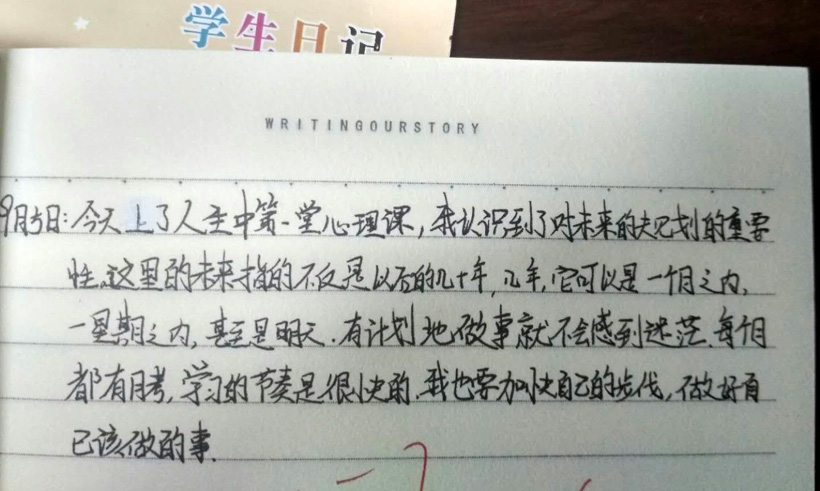 学生日记
WRITINGOURSTORY
9月5日:今天上了人生中第一堂心理课,我认识到了对未来的规划的重要
性。这里的未来指的不仅是以后的几十年,几年,它可以是一个月之内,
一星期之内,甚至是明天.有计划地做事就不会感到迷茫.每个月
都有月考,学习的节奏是很快的.我也要加快自己的步伐,做好自
己该做的事.